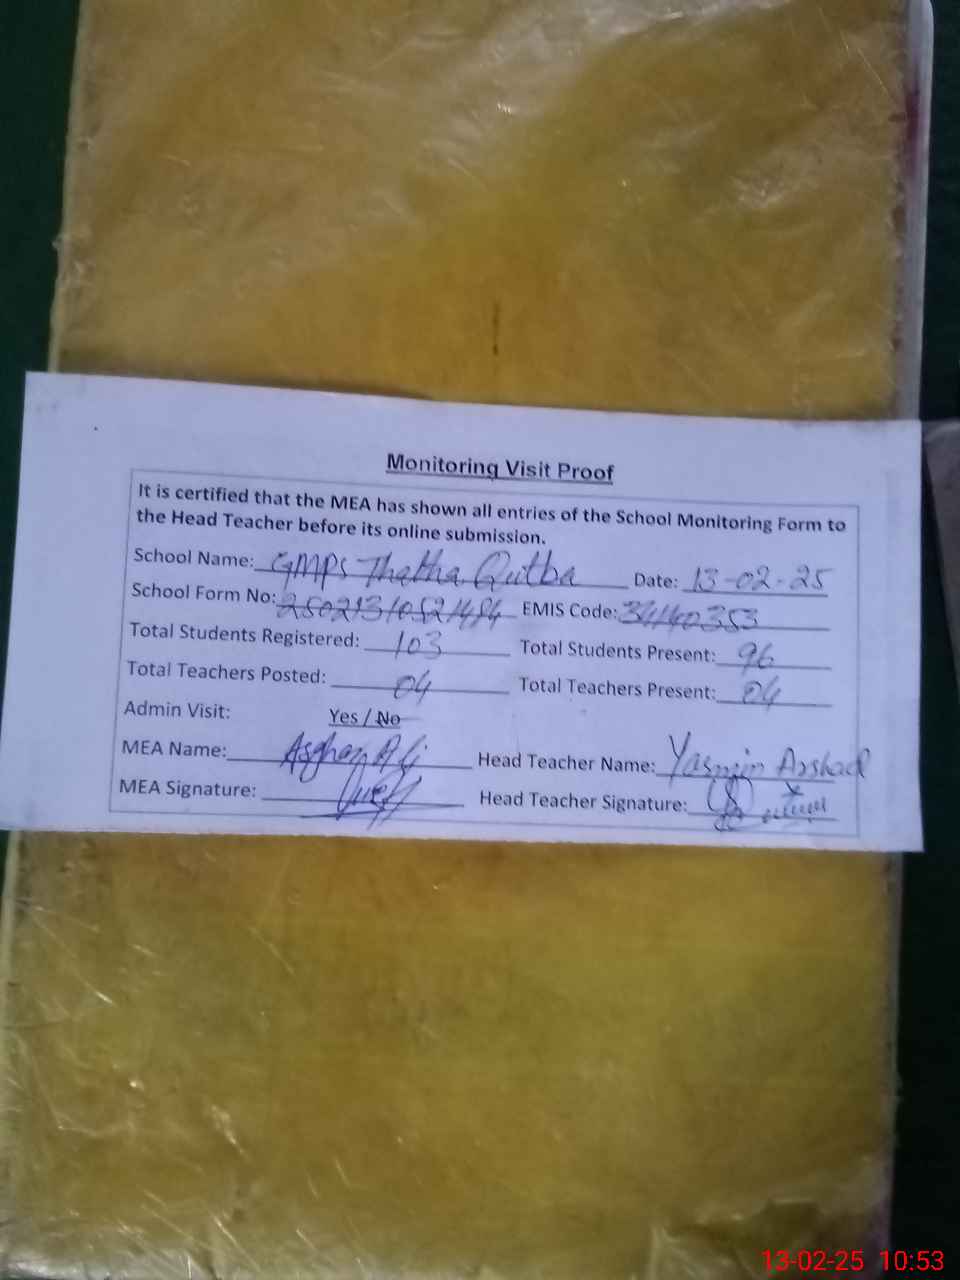 Monitoring Visit Proof
It is certified that the MEA has shown all entries of the School Monitoring Form to
the Head Teacher before its online submission.
School Name: GMPS Thatha Qutba Date: 13-02-25
School Form No: EMIS Code: 34140353
Total Students Registered: 103 Total Students Present: 96
Total Teachers Posted: 04 Total Teachers Present: 04
Admin Visit: Yes / No
MEA Name: Asghar Ali Head Teacher Name: Yasmin Arshad
MEA Signature: Head Teacher Signature:
13-02-25 10:53